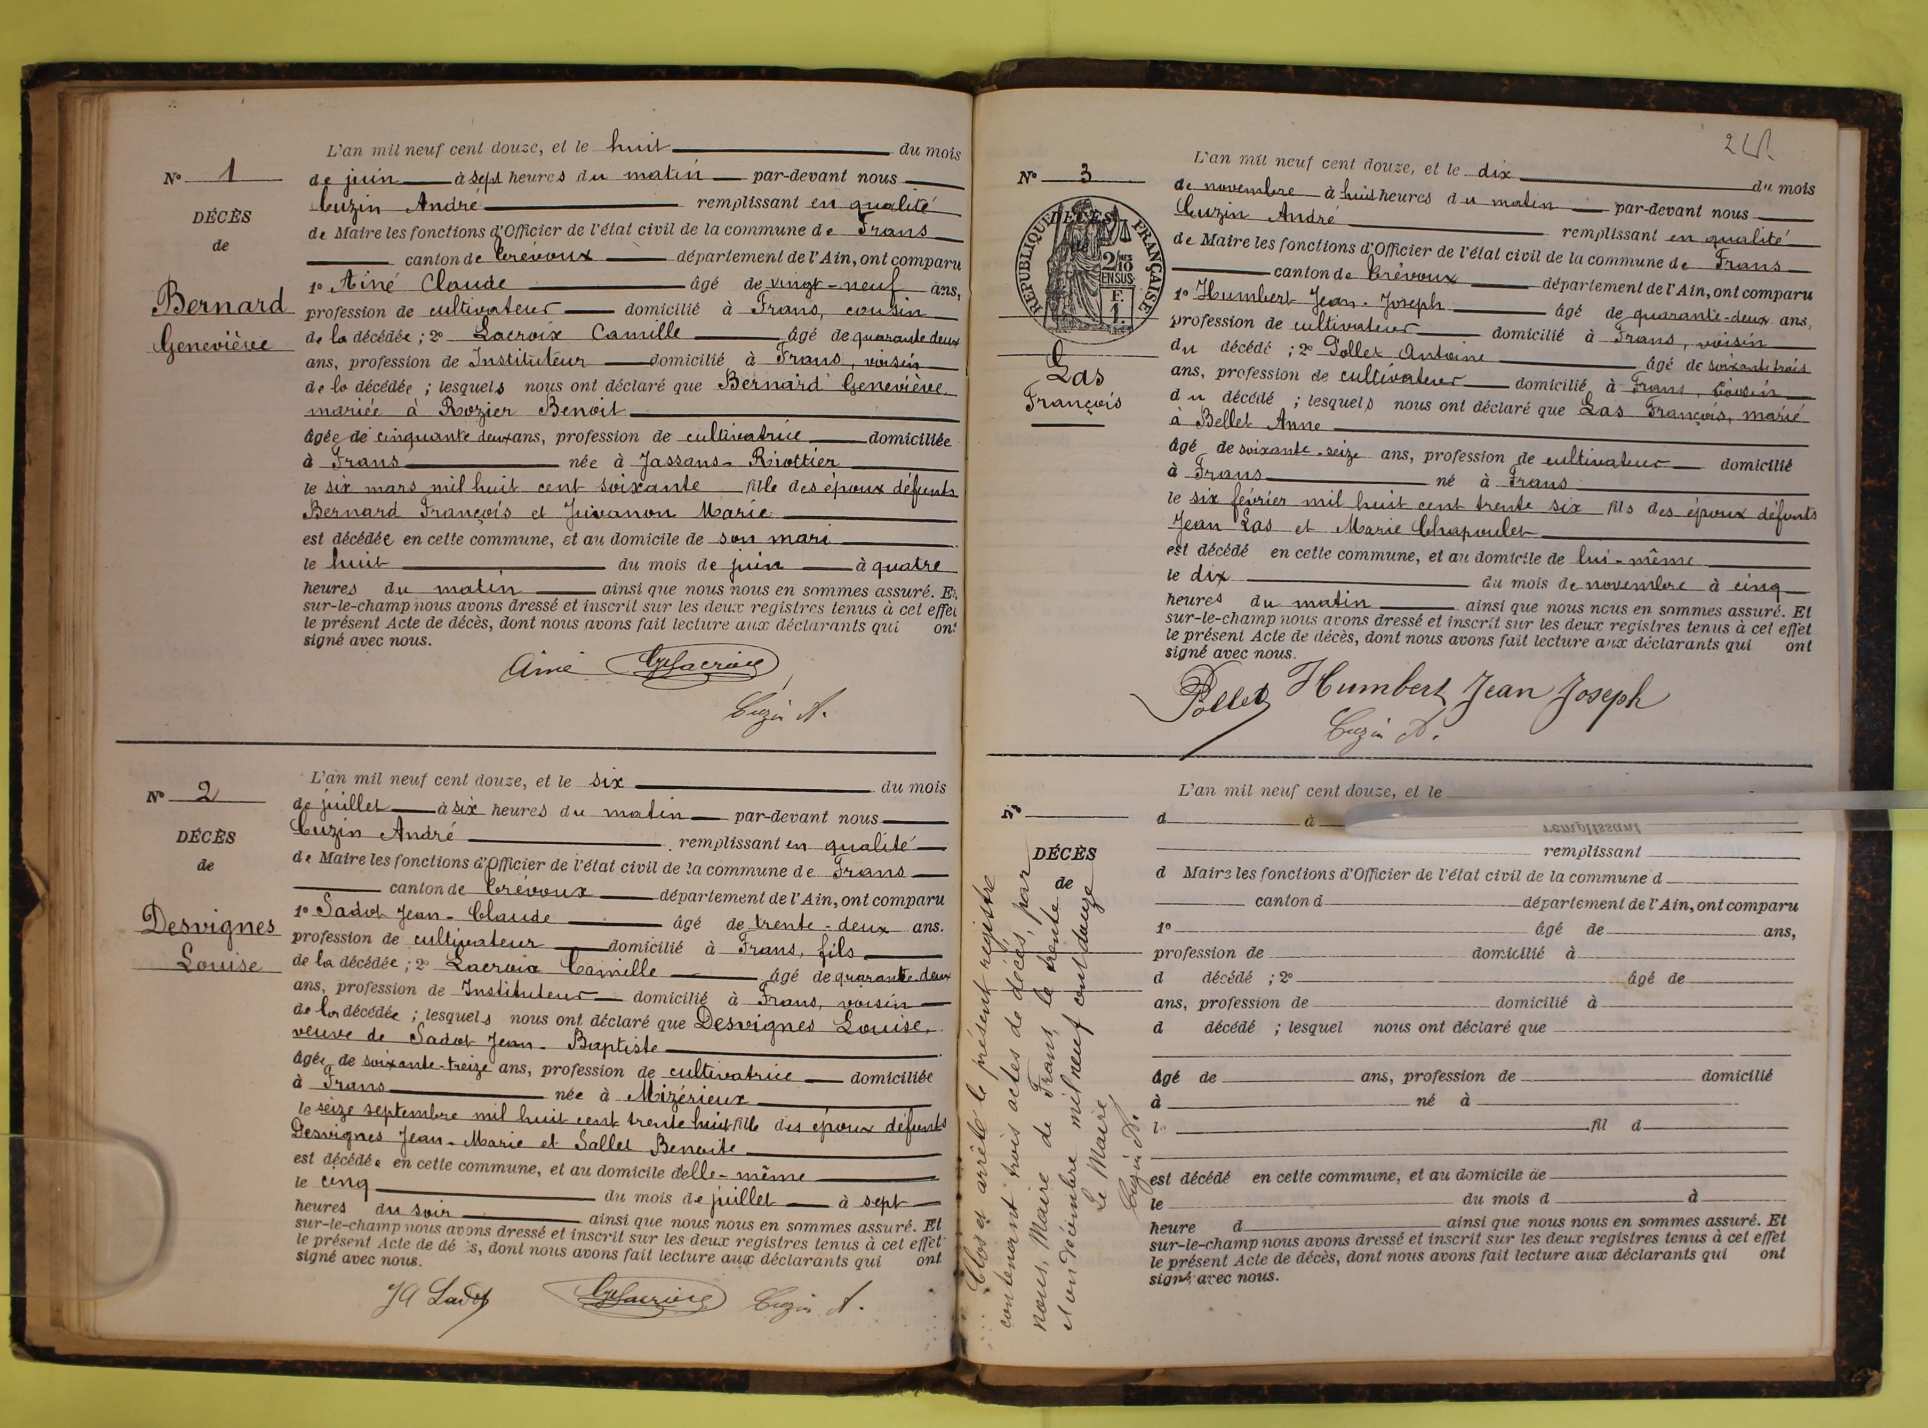 N° 1
DÉCÈS
de
Bernard
Geneviève
L'an mil neuf cent douze, et le huit du mois
de juin à sept heures du matin par-devant nous
Cuzin André remplissant en qualité
de Maire les fonctions d'Officier de l'état civil de la commune de Frans
canton de Trévoux département de l'Ain, ont comparu
1° Aimé Claude âgé de vingt-neuf ans,
profession de cultivateur domicilié à Frans, cousin
de la décédée ; 2° Lacroix Camille âgé de quarante deux
ans, profession de Instituteur domicilié à Frans, voisin
de la décédée ; lesquels nous ont déclaré que Bernard Geneviève,
mariée à Rozier Benoit
âgée de cinquante deux ans, profession de cultivatrice domiciliée
à Frans née à Jassans-Riottier
le six mars mil huit cent soixante fille des époux défunts
Bernard François et Juvanon Marie
est décédée en cette commune, et au domicile de son mari
le huit du mois de juin à quatre
heures du matin ainsi que nous nous en sommes assuré. Et
sur-le-champ nous avons dressé et inscrit sur les deux registres tenus à cet effet
le présent Acte de décès, dont nous avons fait lecture aux déclarants qui ont
signé avec nous.
Aimé Lacroix
Cuzin A.
N° 2
DÉCÈS
de
Desvignes
Louise
L'an mil neuf cent douze, et le six du mois
de juillet à six heures du matin par-devant nous
Cuzin André remplissant en qualité
de Maire les fonctions d'Officier de l'état civil de la commune de Frans
canton de Trévoux département de l'Ain, ont comparu
1° Sadot Jean-Claude âgé de trente-deux ans.
profession de cultivateur domicilié à Frans, fils
de la décédée ; 2° Lacroix Camille âgé de quarante-deux
ans, profession de Instituteur domicilié à Frans, voisin
de la décédée ; lesquels nous ont déclaré que Desvignes Louise,
veuve de Sadot Jean-Baptiste
âgée de soixante-treize ans, profession de cultivatrice domiciliée
à Frans née à Mizérieux
le seize septembre mil huit cent trente huit fille des époux défunts
Desvignes Jean-Marie et Sallet Benoite
est décédée en cette commune, et au domicile d'elle-même
le cinq du mois de juillet à sept
heures du soir ainsi que nous nous en sommes assuré. Et
sur-le-champ nous avons dressé et inscrit sur les deux registres tenus à cet effet
le présent Acte de dé s, dont nous avons fait lecture aux déclarants qui ont
signé avec nous.
Sadot Lacroix Cuzin A.
N° 3
DÉCÈS
de
RÉPUBLIQUE FRANÇAISE
2/10
EN SUS
F.
1.
Las
François
L'an mil neuf cent douze, et le dix du mois
de novembre à huit heures du matin par-devant nous
Cuzin André remplissant en qualité
de Maire les fonctions d'Officier de l'état civil de la commune de Frans
canton de Trévoux département de l'Ain, ont comparu
1° Humbert Jean-Joseph âgé de quarante-deux ans,
profession de cultivateur domicilié à Frans, voisin
du décédé ; 2° Pollet Antoine âgé de soixante trois
ans, profession de cultivateur domicilié à Frans,
du décédé ; lesquels nous ont déclaré que Las François, marié
à Bellet Anne
âgé de soixante-seize ans, profession de cultivateur domicilié
à Frans né à Frans
le six février mil huit cent trente six fils des époux défunts
Jean Las et Marie Chapoulet
est décédé en cette commune, et au domicile de lui-même
le dix du mois de novembre à cinq
heures du matin ainsi que nous nous en sommes assuré. Et
sur-le-champ nous avons dressé et inscrit sur les deux registres tenus à cet effet
le présent Acte de décès, dont nous avons fait lecture aux déclarants qui ont
signé avec nous.
Pollet Humbert Jean Joseph
Cuzin A.
N°
DÉCÈS
de
L'an mil neuf cent douze, et le
d à
remplissant
d Maire les fonctions d'Officier de l'état civil de la commune d
canton d département de l'Ain, ont comparu
1° âgé de ans,
profession de domicilié à
d décédé ; 2° âgé de
ans, profession de domicilié à
d décédé ; lesquel nous ont déclaré que
âgé de ans, profession de domicilié
à né à
l fil d
est décédé en cette commune, et au domicile de
le du mois d à
heure d ainsi que nous nous en sommes assuré. Et
sur-le-champ nous avons dressé et inscrit sur les deux registres tenus à cet effet
le présent Acte de décès, dont nous avons fait lecture aux déclarants qui ont
signé avec nous.
Clos et arrêté le présent registre
contenant trois actes de décès, par
nous, Maire de Frans, le trente
et un décembre mil neuf cent douze
Le Maire,
Cuzin A.